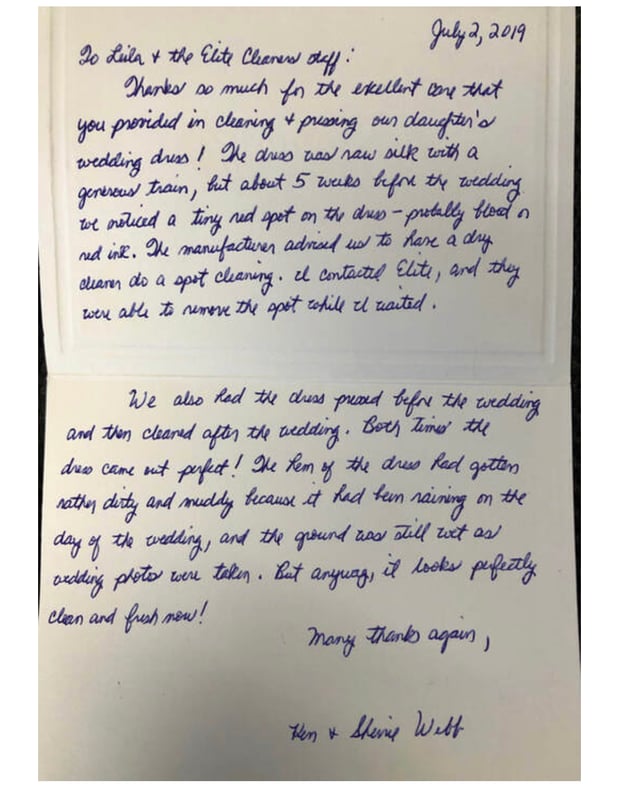 July 2, 2019
To Leila + the Elite Cleaners staff:
Thanks so much for the excellent care that
you provided in cleaning + pressing our daughter's
wedding dress! The dress was raw silk with a
generous train, but about 5 weeks before the wedding
we noticed a tiny red spot on the dress - probably blood or
red ink. The manufacturer advised us to have a dry
cleaner do a spot cleaning. I contacted Elite, and they
were able to remove the spot while I waited.
We also had the dress pressed before the wedding
and then cleaned after the wedding. Both times the
dress came out perfect! The hem of the dress had gotten
rather dirty and muddy because it had been raining on the
day of the wedding, and the ground was still wet as
wedding photos were taken. But anyway, it looks perfectly
clean and fresh now!
Many thanks again,
Ken + Sherrie Webb